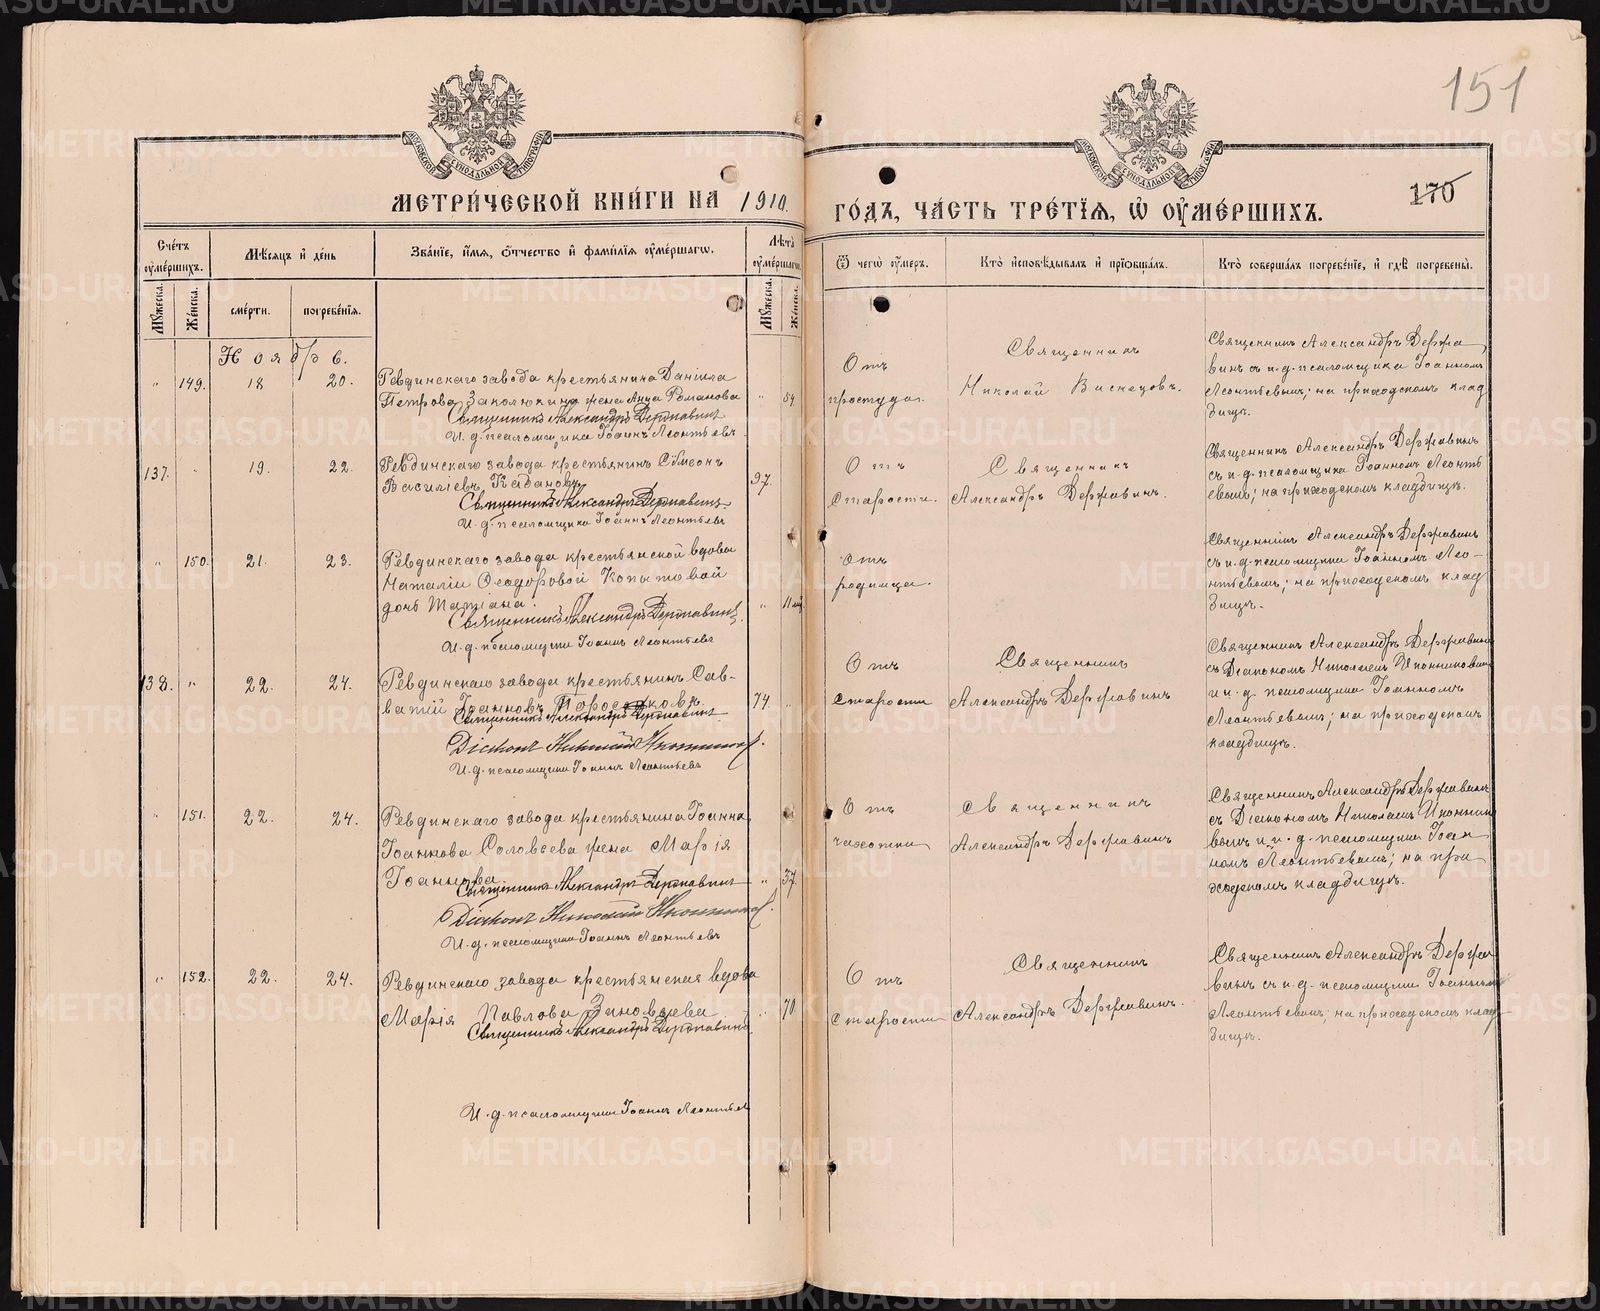 151
МОСКОВСКОЙ СУНОДАЛЬНОЙ ТИПОГРАФІИ
МОСКОВСКОЙ СУНОДАЛЬНОЙ ТИПОГРАФІИ
МЕТРИ́ЧЕСКОЙ КНИ́ГИ НА 1910.
ГО́ДЪ, ЧА́СТЬ ТРЕ́ТІѦ, Ѽ ОУ҆МЕ́РШИХЪ.
170
Сче́тъ оу҆ме́ршихъ.
Мѣ́сѧцъ и҆ де́нь
Зва́нїе, и҆́мѧ, ѻ҆́тчество и҆ фами́лїѧ оу҆ме́ршагѡ.
Лѣ́тъ оу҆ме́ршагѡ.
Ѿ чегѡ̀ оу҆́меръ.
Кто̀ и҆сповѣ́дывалъ и҆ прїѡбща́лъ.
Кто̀ соверша́лъ погребе́нїе, и҆ гдѣ̀ погребены̀.
Мꙋ́жеска.
Же́нска.
сме́рти.
погребе́нїѧ.
Мꙋ́жеска.
Же́нска.
Ноябрь.
" 149. 18 20. Ревдинскаго завода крестьянина Даніила
Петрова Заколюкина жена Анна Романова " 54
Священникъ Александръ Державинъ
И. д. псаломщика Іоаннъ Леонтьевъ
Отъ
простуды.
Священникъ
Николай Виснецовъ.
Священникъ Александръ Держа
винъ съ и. д. псаломщика Іоанномъ
Леонтьевымъ; на приходскомъ клад
бищѣ.
137. " 19. 22. Ревдинскаго завода крестьянинъ Сѵмеонъ
Василіевъ Кабановъ 97.
Священникъ Александръ Державинъ
И. д. псаломщика Іоаннъ Леонтьевъ
Отъ
старости.
Священникъ
Александръ Державинъ.
Священникъ Александръ Державинъ
съ и. д. псаломщика Іоанномъ Леонть
евымъ; на приходскомъ кладбищѣ.
" 150. 21. 23. Ревдинскаго завода крестьянской вдовы
Наталіи Ѳеодоровой Копытовой
дочь Татіана. " 11 м.
Священникъ Александръ Державинъ
И. д. псаломщика Іоаннъ Леонтьевъ
Отъ
родимца.
Священникъ Александръ Державинъ
съ и. д. псаломщика Іоанномъ Лео-
нтьевымъ; на приходскомъ клад
бищѣ.
138. " 22. 24. Ревдинскаго завода крестьянинъ Сав-
ватій Іоанновъ 74. "
Священникъ Александръ Державинъ
Діаконъ Николай Иконников.
И. д. псаломщика Іоаннъ Леонтьевъ
Отъ
старости
Священникъ
Александръ Державинъ
Священникъ Александръ Державинъ
съ Діакономъ Николаем Иконниковым
и и. д. псаломщика Іоанномъ
Леонтьевымъ; на приходскомъ
кладбищѣ.
" 151. 22. 24. Ревдинскаго завода крестьянина Іоанна
Іоаннова Соловьева жена Марія
Іоаннова. " 37.
Священникъ Александръ Державинъ
Діаконъ Николай Иконников.
И. д. псаломщика Іоаннъ Леонтьевъ
Отъ
чахотки
Священникъ
Александръ Державинъ
Священникъ Александръ Державинъ
съ Діакономъ Николаемъ Иконнико
вымъ и и. д. псаломщика Іоан
номъ Леонтьевымъ; на при
ходскомъ кладбищѣ.
" 152. 22. 24. Ревдинскаго завода крестьянская вдова
Марія Павлова Зиновьева. " 70
Священникъ Александръ Державинъ
И. д. псаломщика Іоаннъ Леонтьев
Отъ
старости
Священникъ
Александръ Державинъ.
Священникъ Александръ Держа
винъ съ и. д. псаломщика Іоанномъ
Леонтьевымъ; на приходскомъ клад
бищѣ.
METRIKI.GASO-URAL.RU